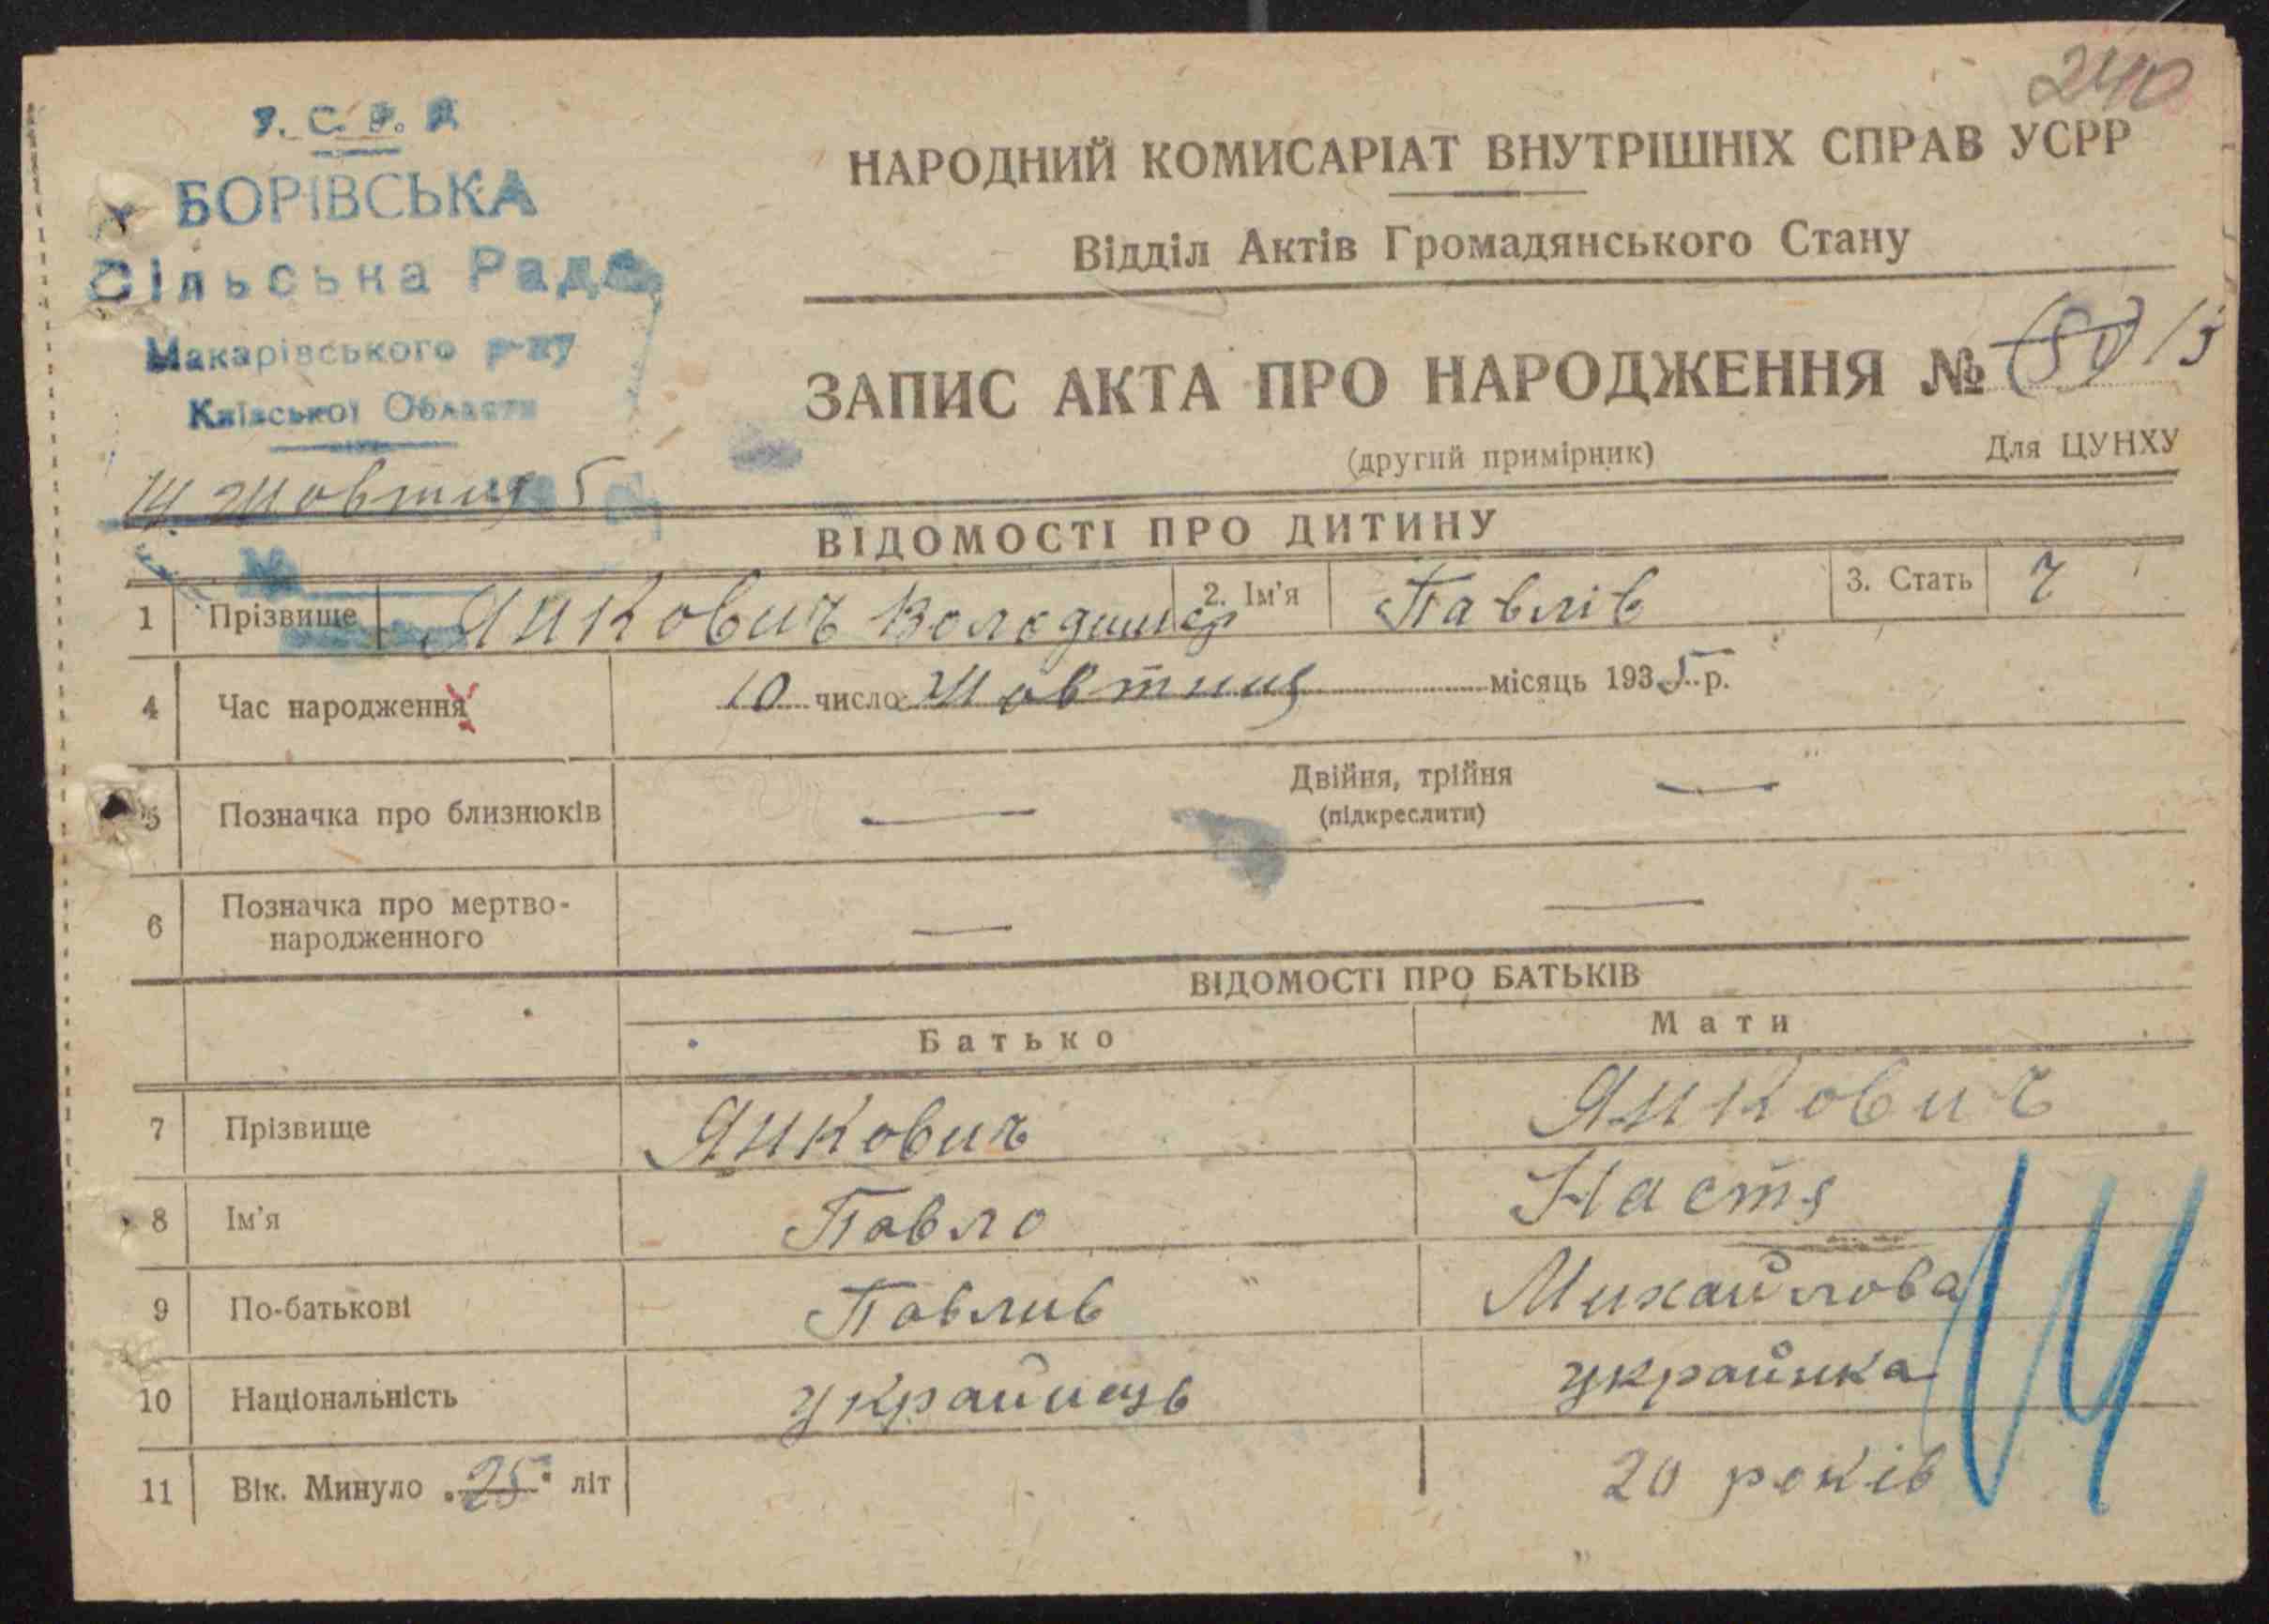 240
У. С. Р. Р.
БОРІВСЬКА
Сільська Рада
Макарівського р-ну
Київської Области
14 Жовтня 5
№
НАРОДНИЙ КОМИСАРІАТ ВНУТРІШНІХ СПРАВ УСРР
Відділ Актів Громадянського Стану
ЗАПИС АКТА ПРО НАРОДЖЕННЯ №
(другий примірник) Для ЦУНХУ
ВІДОМОСТІ ПРО ДИТИНУ
1 Прізвище Янкович Володимир 2. Ім'я Павлів 3. Стать ч
4 Час народження 10 число Жовтня місяць 1935 р.
5 Позначка про близнюків — Двійня, трійня —
(підкреслити)
6 Позначка про мертво-
народженного — —
ВІДОМОСТІ ПРО БАТЬКІВ
Батько Мати
7 Прізвище Янкович Янкович
8 Ім'я Павло Настя
9 По-батькові Павлив Михайлова
10 Національність украйнець украйнка
11 Вік. Минуло „25“ літ 20 років